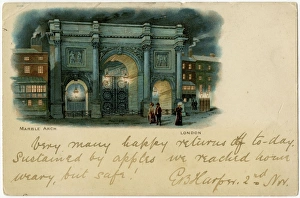 MARBLE ARCH
LONDON
Very many happy returns of to-day.
Sustained by apples we reached home
weary, but safe!
2nd Nov.